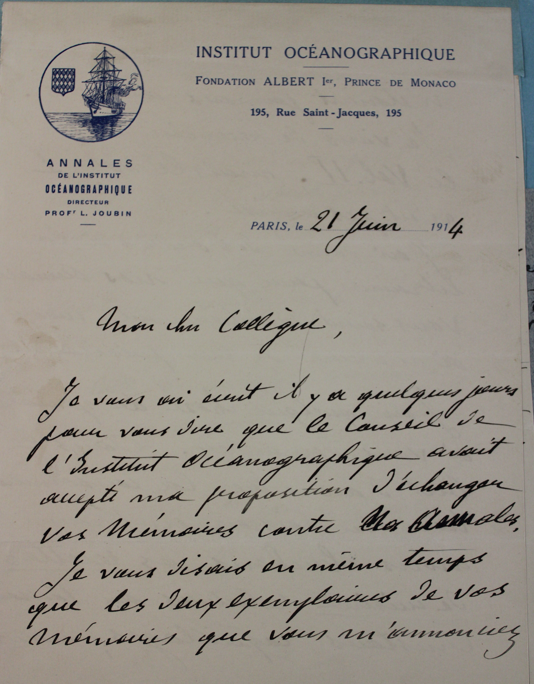 INSTITUT OCÉANOGRAPHIQUE
FONDATION ALBERT Ier, PRINCE DE MONACO
195, Rue Saint-Jacques, 195
ANNALES
DE L'INSTITUT
OCÉANOGRAPHIQUE
DIRECTEUR
PROFr L. JOUBIN
PARIS, le 21 Juin 1914
Mon cher Collègue,
Je vous ai écrit il y a quelques jours
pour vous dire que le Conseil de
l'Institut Océanographique avait
accepté ma proposition d'échanger
vos Mémoires contre nos Annales.
Je vous disais en même temps
que les deux exemplaires de vos
Mémoires que vous m'annonciez